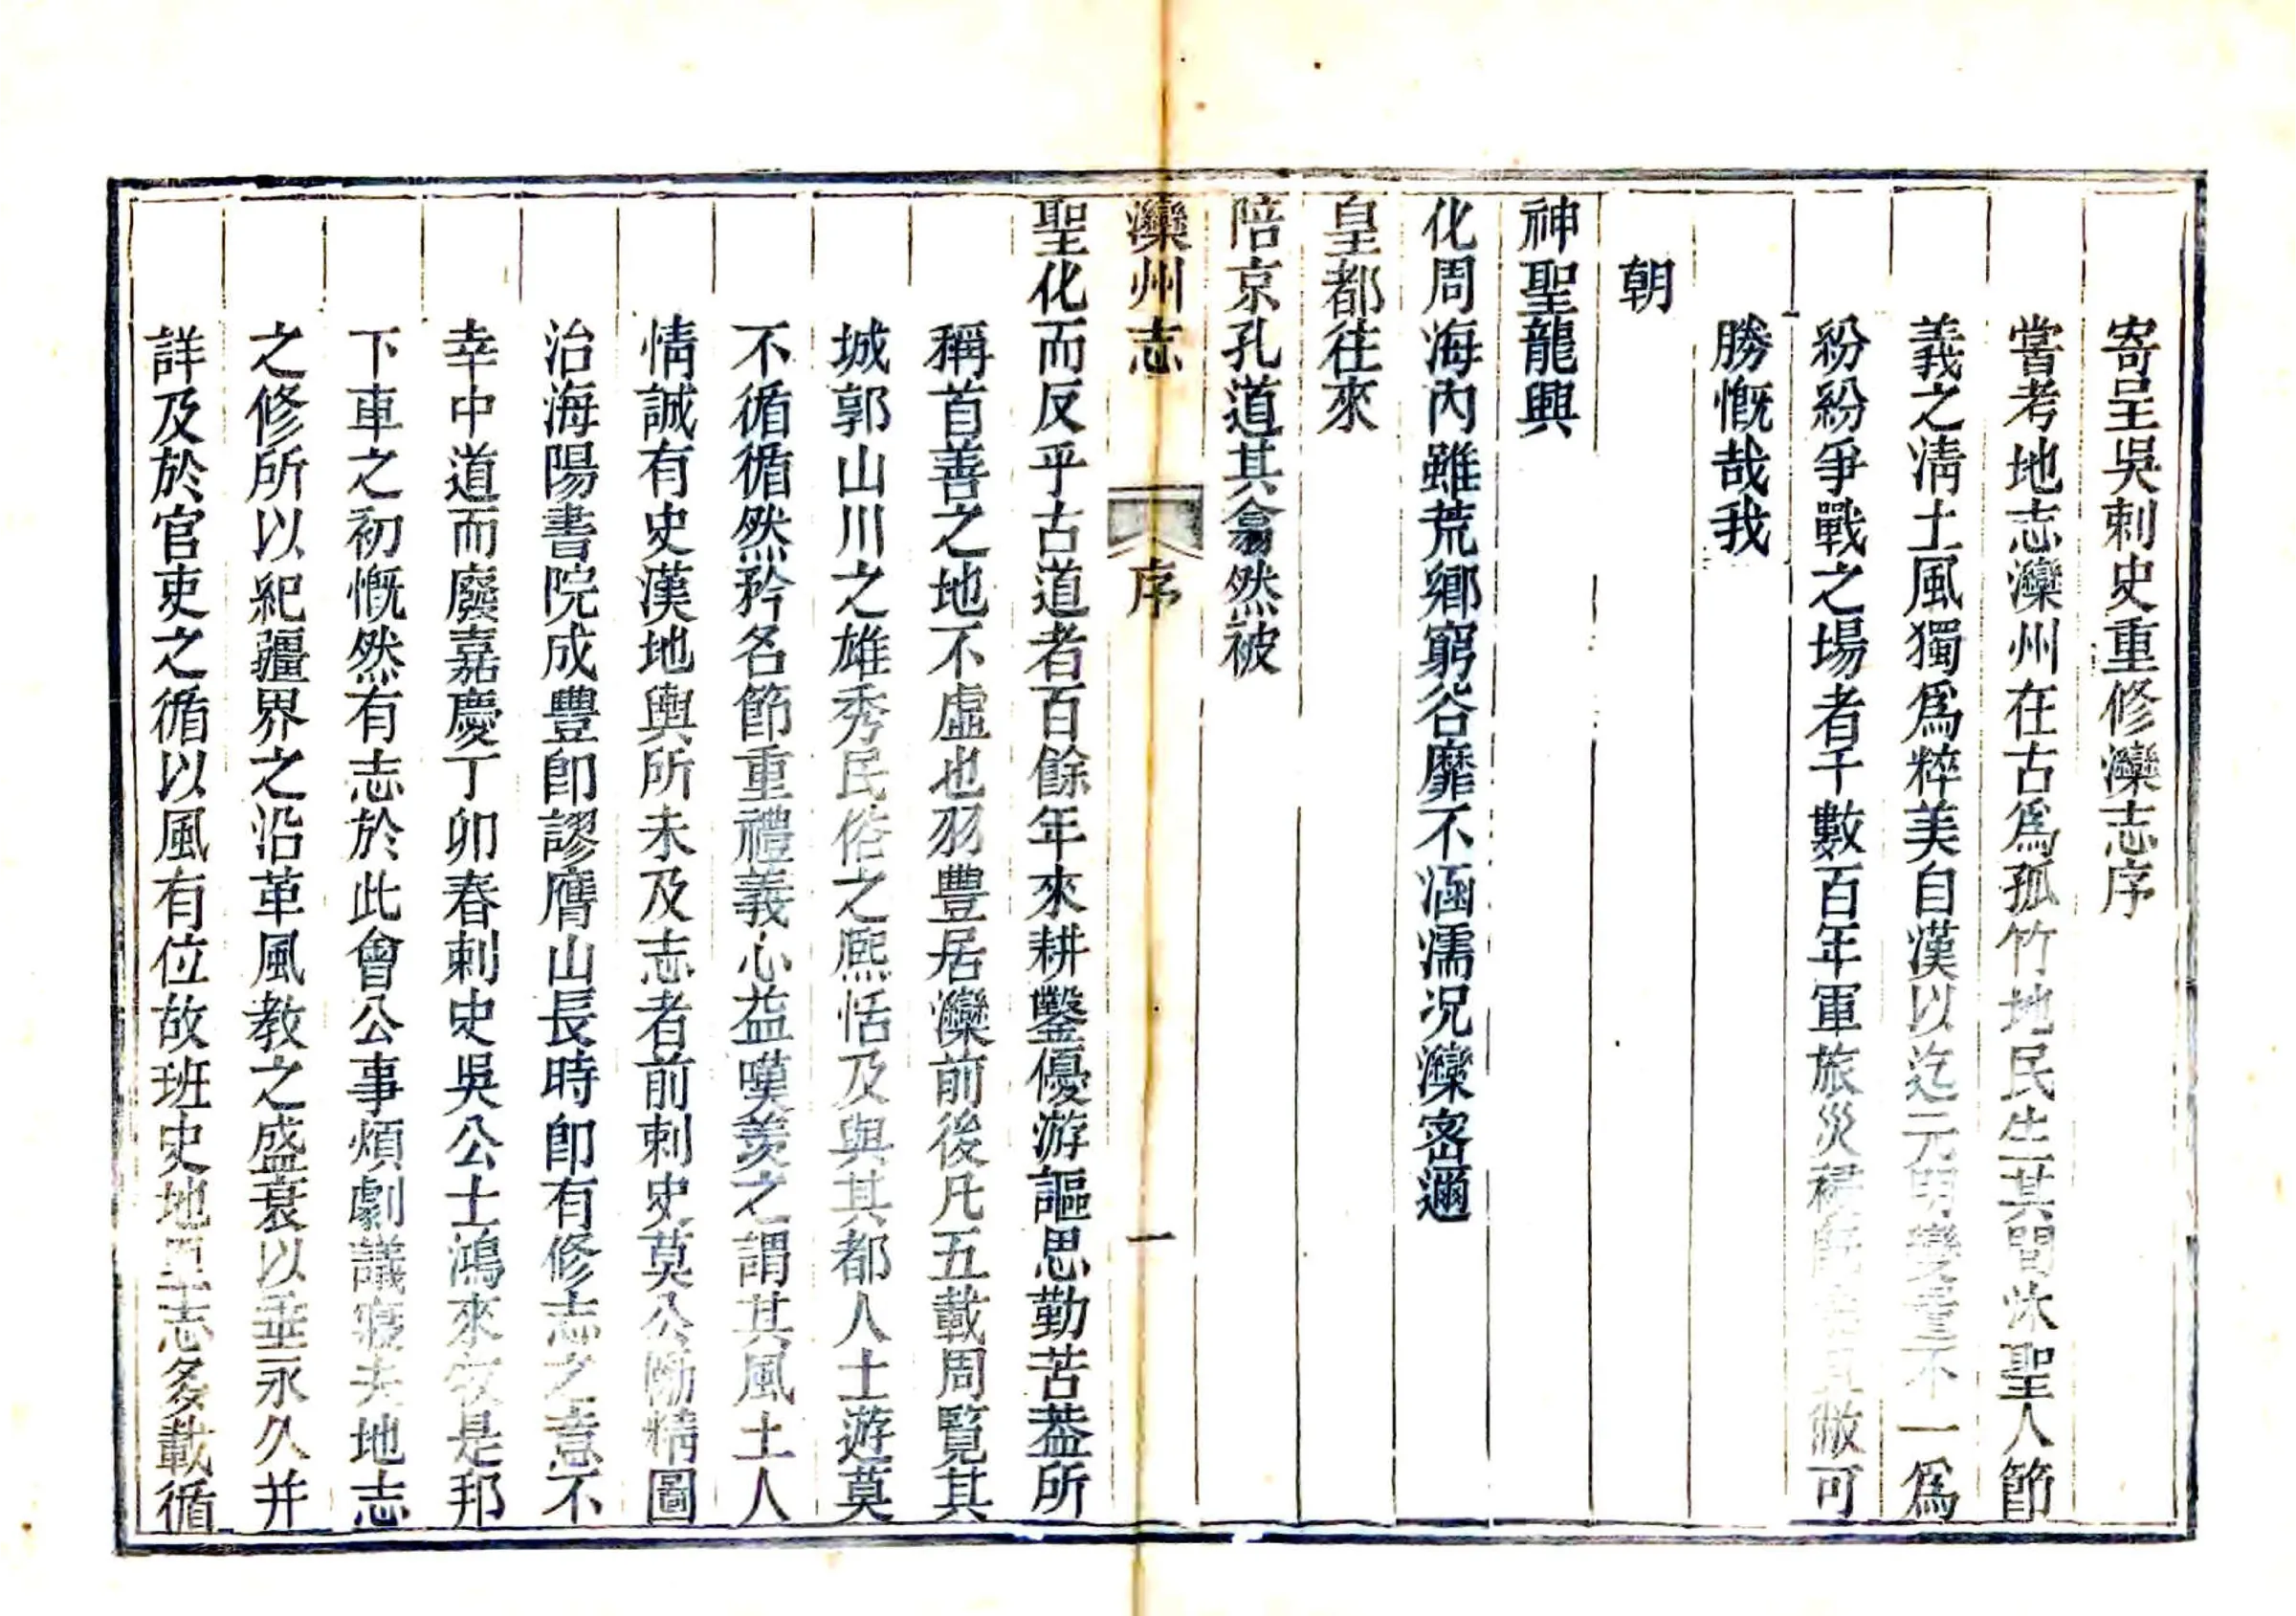 寄呈吳刺史重修灤志序
嘗考地志灤州在古爲孤竹地民生其間沐聖人節
義之淸土風獨爲粹美自漢以迄元明變置不一爲
紛紛爭戰之場者千數百年軍旅災祲敝可
勝慨哉我
朝
神聖龍興
化周海內雖荒鄉窮谷靡不涵濡況灤密邇
皇都往來
陪京孔道其翕然被
灤州志 序 一
聖化而反乎古道者百餘年來耕鑿優游謳思勤苦葢所
稱首善之地不虛也羽豐居灤前後凡五載周覧其
城郭山川之雄秀民俗之熈恬及與其都人士遊莫
不循循然矜名節重禮義心益嘆羨之謂其風土人
情誠有史漢地輿所未及志者前刺史莫公勵精圖
治海陽書院成豐卽謬膺山長時卽有修志之意不
幸中道而廢嘉慶丁卯春刺史吳公士鴻來牧是邦
下車之初慨然有志於此會公事煩劇議寢夫地志
之修所以紀疆界之沿革風教之盛衰以垂永久并
詳及於官吏之循以風有位故班史地里志多載循